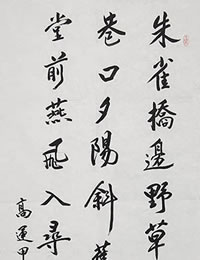 朱雀橋邊野草
巷口夕陽斜舊
堂前燕飛入尋
高運甲